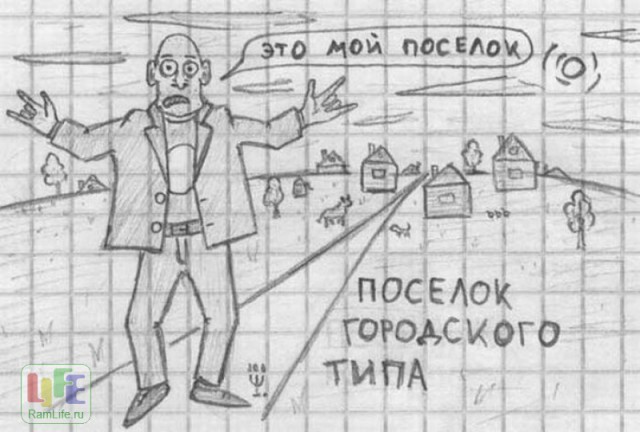 ЭТО МОЙ ПОСЕЛОК
ПОСЕЛОК
ГОРОДСКОГО
ТИПА
LIFE
RamLife.ru